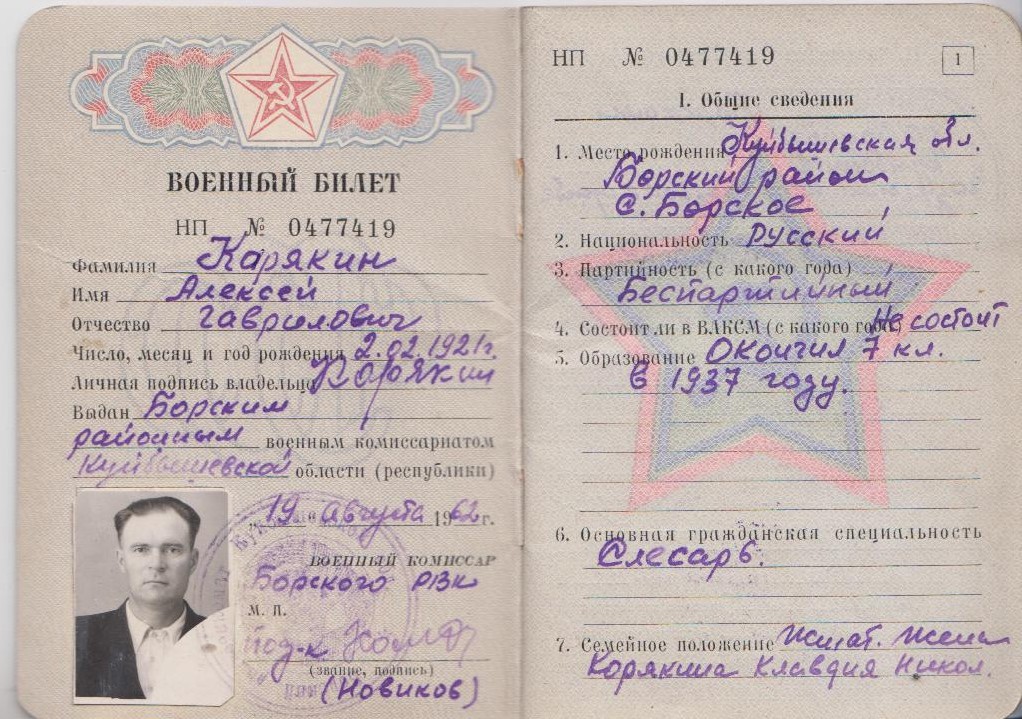 ВОЕННЫЙ БИЛЕТ
НП № 0477419
Фамилия Карякин
Имя Алексей
Отчество Гаврилович
Число, месяц и год рождения 2.02.1921г.
Личная подпись владельца Карякин
Выдан Борским
районным военным комиссариатом
Куйбышевской области (республики)
„19" августа 1962г.
ВОЕННЫЙ КОМИССАР
Борского РВК
М. П.
под-к
(звание, подпись)
(Новиков)
НП № 0477419
1
I. Общие сведения
1. Место рождения Куйбышевская обл.
Борский район
с. Борское
2. Национальность Русский
3. Партийность (с какого года)
Беспартийный
4. Состоит ли в ВЛКСМ (с какого года) Не состоит
5. Образование Окончил 7 кл.
в 1937 году.
6. Основная гражданская специальность
Слесарь.
7. Семейное положение Женат. Жена
Корякина Клавдия Никол.